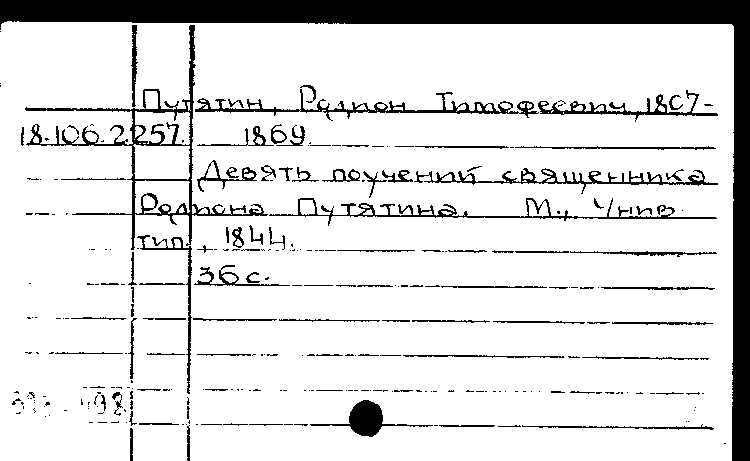 Путятин, Родион Тимофеевич, 1807-
18.106.2.257. 1869.
Девять поучений священника
Родиона Путятина. М., Унив.
тип., 1844.
36 с.